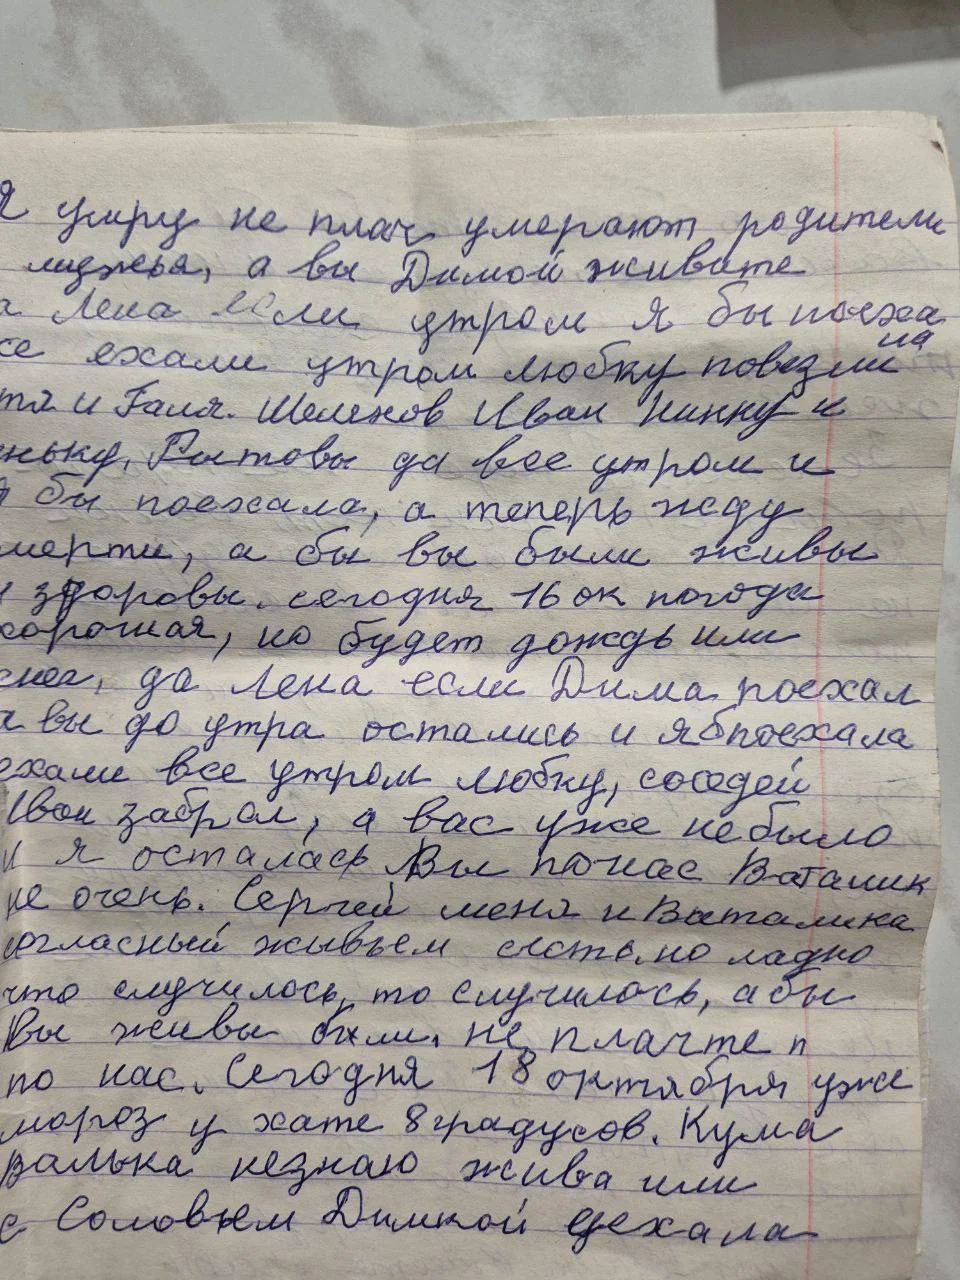 Я умру не плач умерают родители
а вы Димой живите
а Лена если утром я бы поеха
се ехали утром Любку повезли на
тя и Галя. Шелехов Иван Нинку и
ньку, да все утром и
я бы поехала, а теперь жду
мерти, а бы вы были живы
и здоровы. сегодня 16 ок погода
хорошая, но будет дождь или
снег, да Лена если Дима поехал
а вы до утра остались и я б поехала
ехали все утром Любку, соседей
Иван забрал, а вас уже небыло
и я осталась Вы по нас Ваталик
не очень. Сергей меня и Ваталика
огласный жывьем сьсть, но ладно
что случилось, то случилось, абы
Вы живы были. не плачте п
по нас. Сегодня 18 октября уже
мороз у хате 8 градусов. Кума
валька незнаю жива или
с Соловьем Димкой уехала